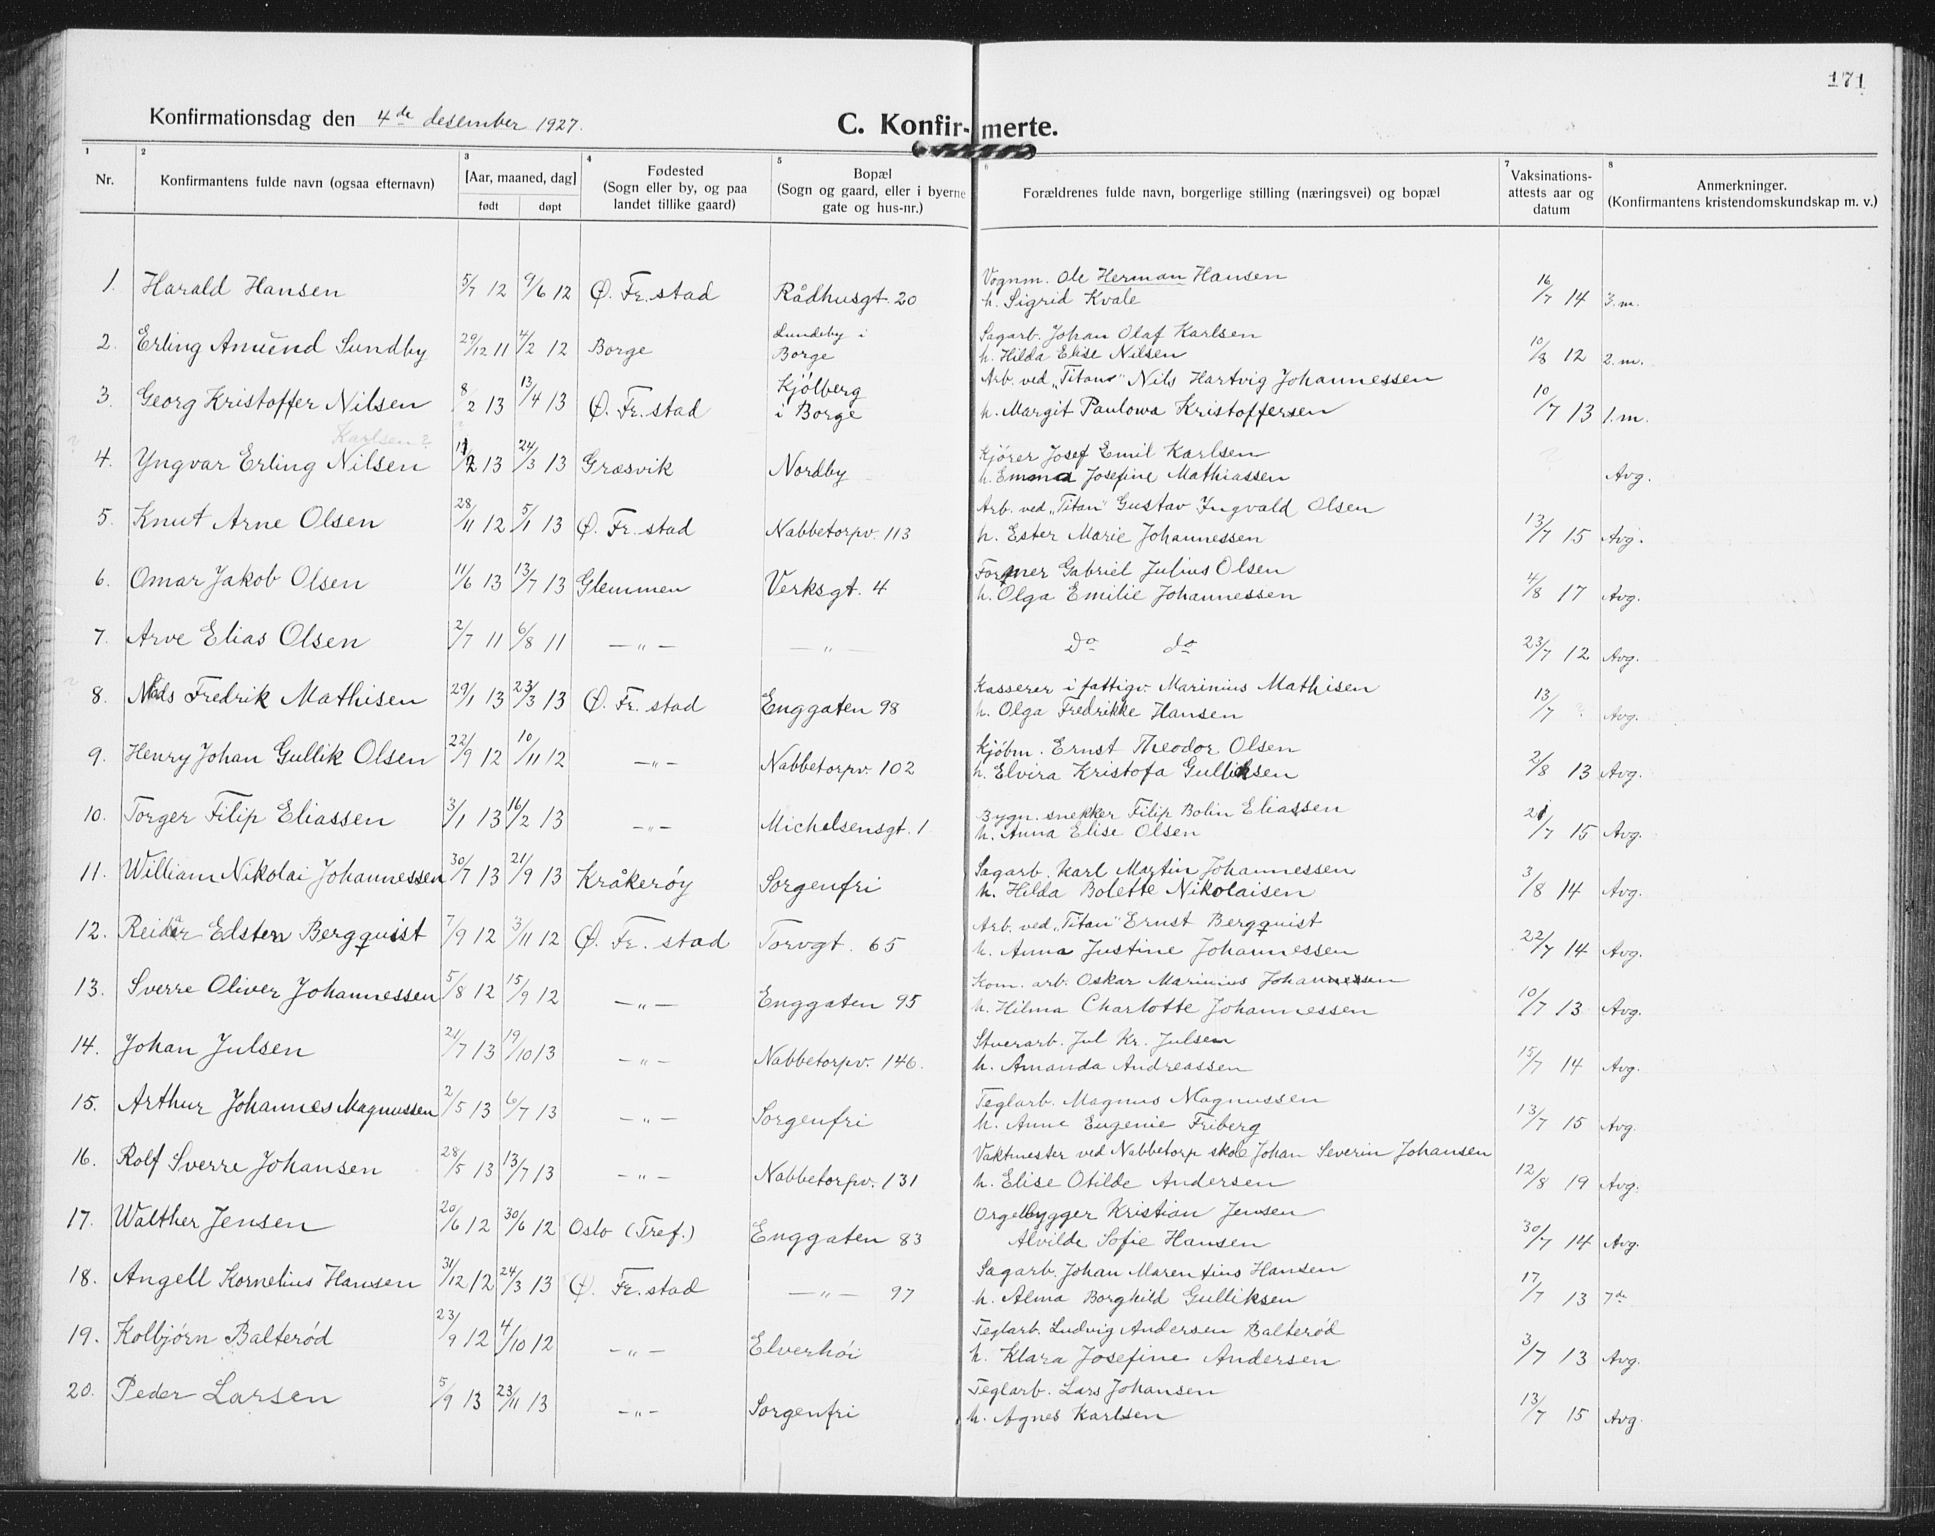 171
Konfirmationsdag den 4de desember 1927.
C. Konfirmerte.
1 2 3 4 5 6 7 8
Nr. Konfirmantens fulde navn (ogsaa efternavn) [Aar, maaned, dag] født døpt Fødested (Sogn eller by, og paa landet tillike gaard) Bopæl (Sogn og gaard, eller i byerne gate og hus-nr.) Forældrenes fulde navn, borgerlige stilling (næringsvei) og bopæl Vaksinations-attests aar og datum Anmerkninger. (Konfirmantens kristendomskundskap m. v.)
1. Harald Hansen 5/7 12 9/6 12 Ø. Fr. stad Rådhusgt. 20 Vognm. Ole Herman Hansen
h. Sigrid Kvale 16/7 14 3. m.
2. Erling Amund Sundby 29/12 11 4/2 12 Borge Lundeby i Borge Sagarb. Johan Olaf Karlsen
h. Hilda Elise Nilsen 10/8 12 2. m.
3. Georg Kristoffer Nilsen 8/2 13 13/4 13 Ø. Fr. stad Kjølberg i Borge Arb. ved "Titan" Nils Hartvig Johannessen
h. Margit Paulowa Kristoffersen 10/7 13 1. m.
Karlsen?
4. Yngvar Erling Nilsen 13 24/3 13 Græsvik Nordby Kjører Josef Emil Karlsen
h. Emma Josefine Mathiassen Avg.
5. Knut Arne Olsen 28/11 12 5/1 13 Ø. Fr. stad Nabbetorpv. 113 Arb. ved "Titan" Gustav Ingvald Olsen
h. Ester Marie Johannessen 13/7 15 Avg.
6. Omar Jakob Olsen 11/6 13 13/7 13 Glemmen Verksgt. 4 Former Gabriel Julius Olsen
h. Olga Emilie Johannessen 4/8 17 Avg.
7. Arve Elias Olsen 2/7 11 6/8 11 — " — — " — Do do 23/7 12 Avg.
8. Nils Fredrik Mathisen 29/1 13 23/3 13 Ø. Fr. stad Enggaten 98 Kasserer i fattigv. Marinius Mathisen
h. Olga Fredrikke Hansen 13/7 ? Avg.
9. Henry Johan Gullik Olsen 22/9 12 10/11 12 — " — Nabbetorpv. 102 Kjøbm. Ernst Theodor Olsen
h. Elvira Kristofa Gulliksen 2/8 13 Avg.
10. Torger Filip Eliassen 3/1 13 16/2 13 — " — Michelsensgt. 1 Bygn. snekker Filip Bolin Eliassen
h. Anna Elise Olsen 21/7 15 Avg.
11. William Nikolai Johannessen 30/7 13 21/9 13 Kråkerøy Sorgenfri Sagarb. Karl Martin Johannessen
h. Hilda Bolette Nikolaisen 3/8 14 Avg.
12. Reidar Edsten Bergquist 7/9 12 3/11 12 Ø. Fr. stad Torvgt. 65 Arb. ved "Titan" Ernst Bergquist
h. Anna Justine Johannessen 22/7 14 Avg.
13. Sverre Oliver Johannessen 5/8 12 15/9 12 — " — Enggaten 95 Kom. arb. Oskar Marinius Johannessen
h. Hilma Charlotte Johannessen 10/7 13 Avg.
14. Johan Julsen 21/7 13 19/10 13 — " — Nabbetorpv. 146. Stuerarb. Jul Kr. Julsen
h. Amanda Andreassen 15/7 14 Avg.
15. Arthur Johannes Magnussen 2/5 13 6/7 13 — " — Sorgenfri Teglarb. Magnus Magnussen
h. Anne Eugenie Friberg 13/7 15 Avg.
16. Rolf Sverre Johansen 28/5 13 13/7 13 — " — Nabbetorpv. 131 Vaktmester ved Nabbetorp skole Johan Severin Johansen
h. Elise Otilde Andersen 12/8 19 Avg.
17. Walther Jensen 20/6 12 30/6 12 Oslo (Tref.) Enggaten 83 Orgelbygger Kristian Jensen
Alvilde Sofie Hansen 30/7 14 Avg.
18. Angell Kornelius Hansen 31/12 12 24/3 13 Ø. Fr. stad — " — 97 Sagarb. Johan Marentius Hansen
h. Alma Borghild Gulliksen 17/7 13 7de
19. Kolbjørn Balterød 23/9 12 4/10 12 — " — Elverhøi Teglarb. Ludvig Andersen Balterød
h. Klara Josefine Andersen 3/7 13 Avg.
20. Peder Larsen 5/9 13 23/11 13 — " — Sorgenfri Teglarb. Lars Johansen
h. Agnes Karlsen 13/7 15 Avg.